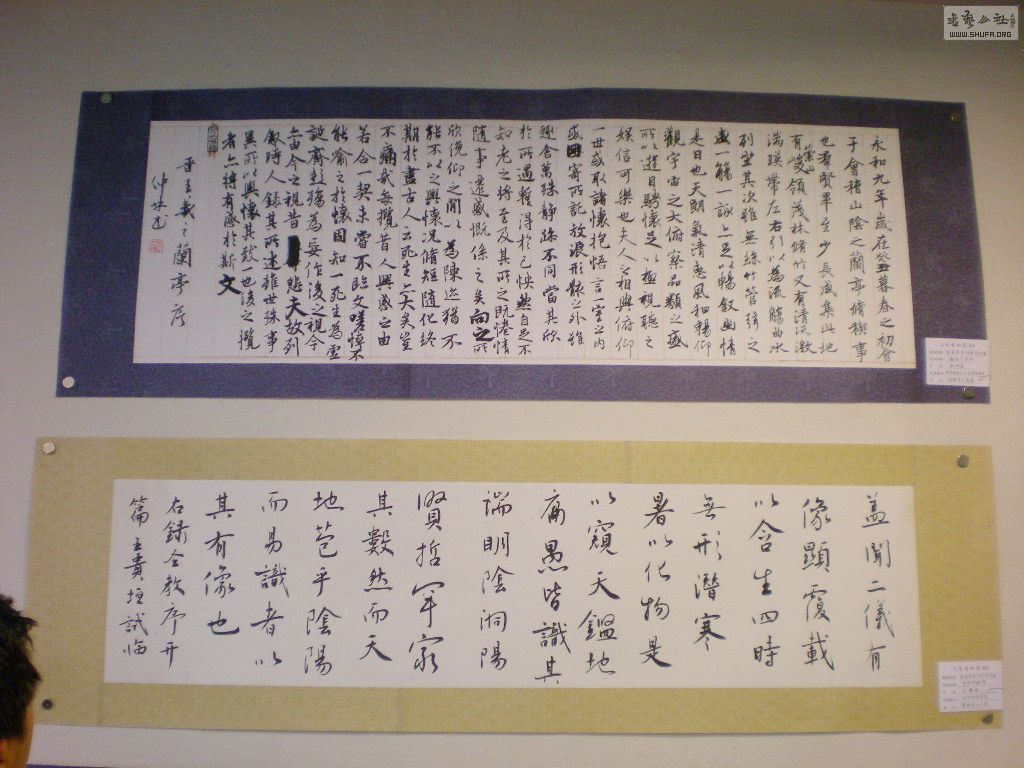 永和九年歲在癸丑暮春之初會
于會稽山陰之蘭亭脩稧事
也羣賢畢至少長咸集此地
有崇山峻領茂林脩竹又有清流激
湍暎帶左右引以為流觴曲水
列坐其次雖無絲竹管弦之
盛一觴一詠亦足以暢敘幽情
是日也天朗氣清惠風和暢仰
觀宇宙之大俯察品類之盛
所以遊目騁懷足以極視聽之
娛信可樂也夫人之相與俯仰
一世或取諸懷抱悟言一室之內
或因寄所託放浪形骸之外雖
趣舍萬殊静躁不同當其欣
於所遇蹔得於己怏然自足不
知老之將至及其所之既惓情
隨事遷感慨係之矣向之所
欣俛仰之間以為陳迹猶不
能不以之興懷況脩短隨化終
期於盡古人云死生亦大矣豈
不痛哉每攬昔人興感之由
若合一契未嘗不臨文嗟悼不
能喻之於懷固知一死生為虛
誕齊彭殤為妄作後之視今
亦由今之視昔悲夫故列
敘時人錄其所述雖世殊事
異所以興懷其致一也後之攬
者亦將有感於斯文
晉王羲之蘭亭序
仲林
蓋聞二儀有
像顯覆載
以含生四時
無形潛寒
暑以化物是
以窺天鑑地
庸愚皆識其
端明陰洞陽
賢哲罕窮
其數然而天
地苞乎陰陽
而易識者以
其有像也
右録圣教序开
篇王貴垣試臨
書藝公社
WWW.SHUFA.ORG